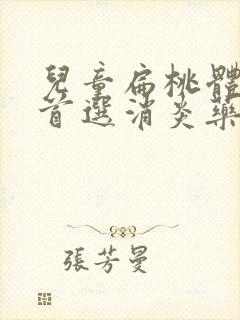 兒童扁桃體
首選消炎藥
張芳曼